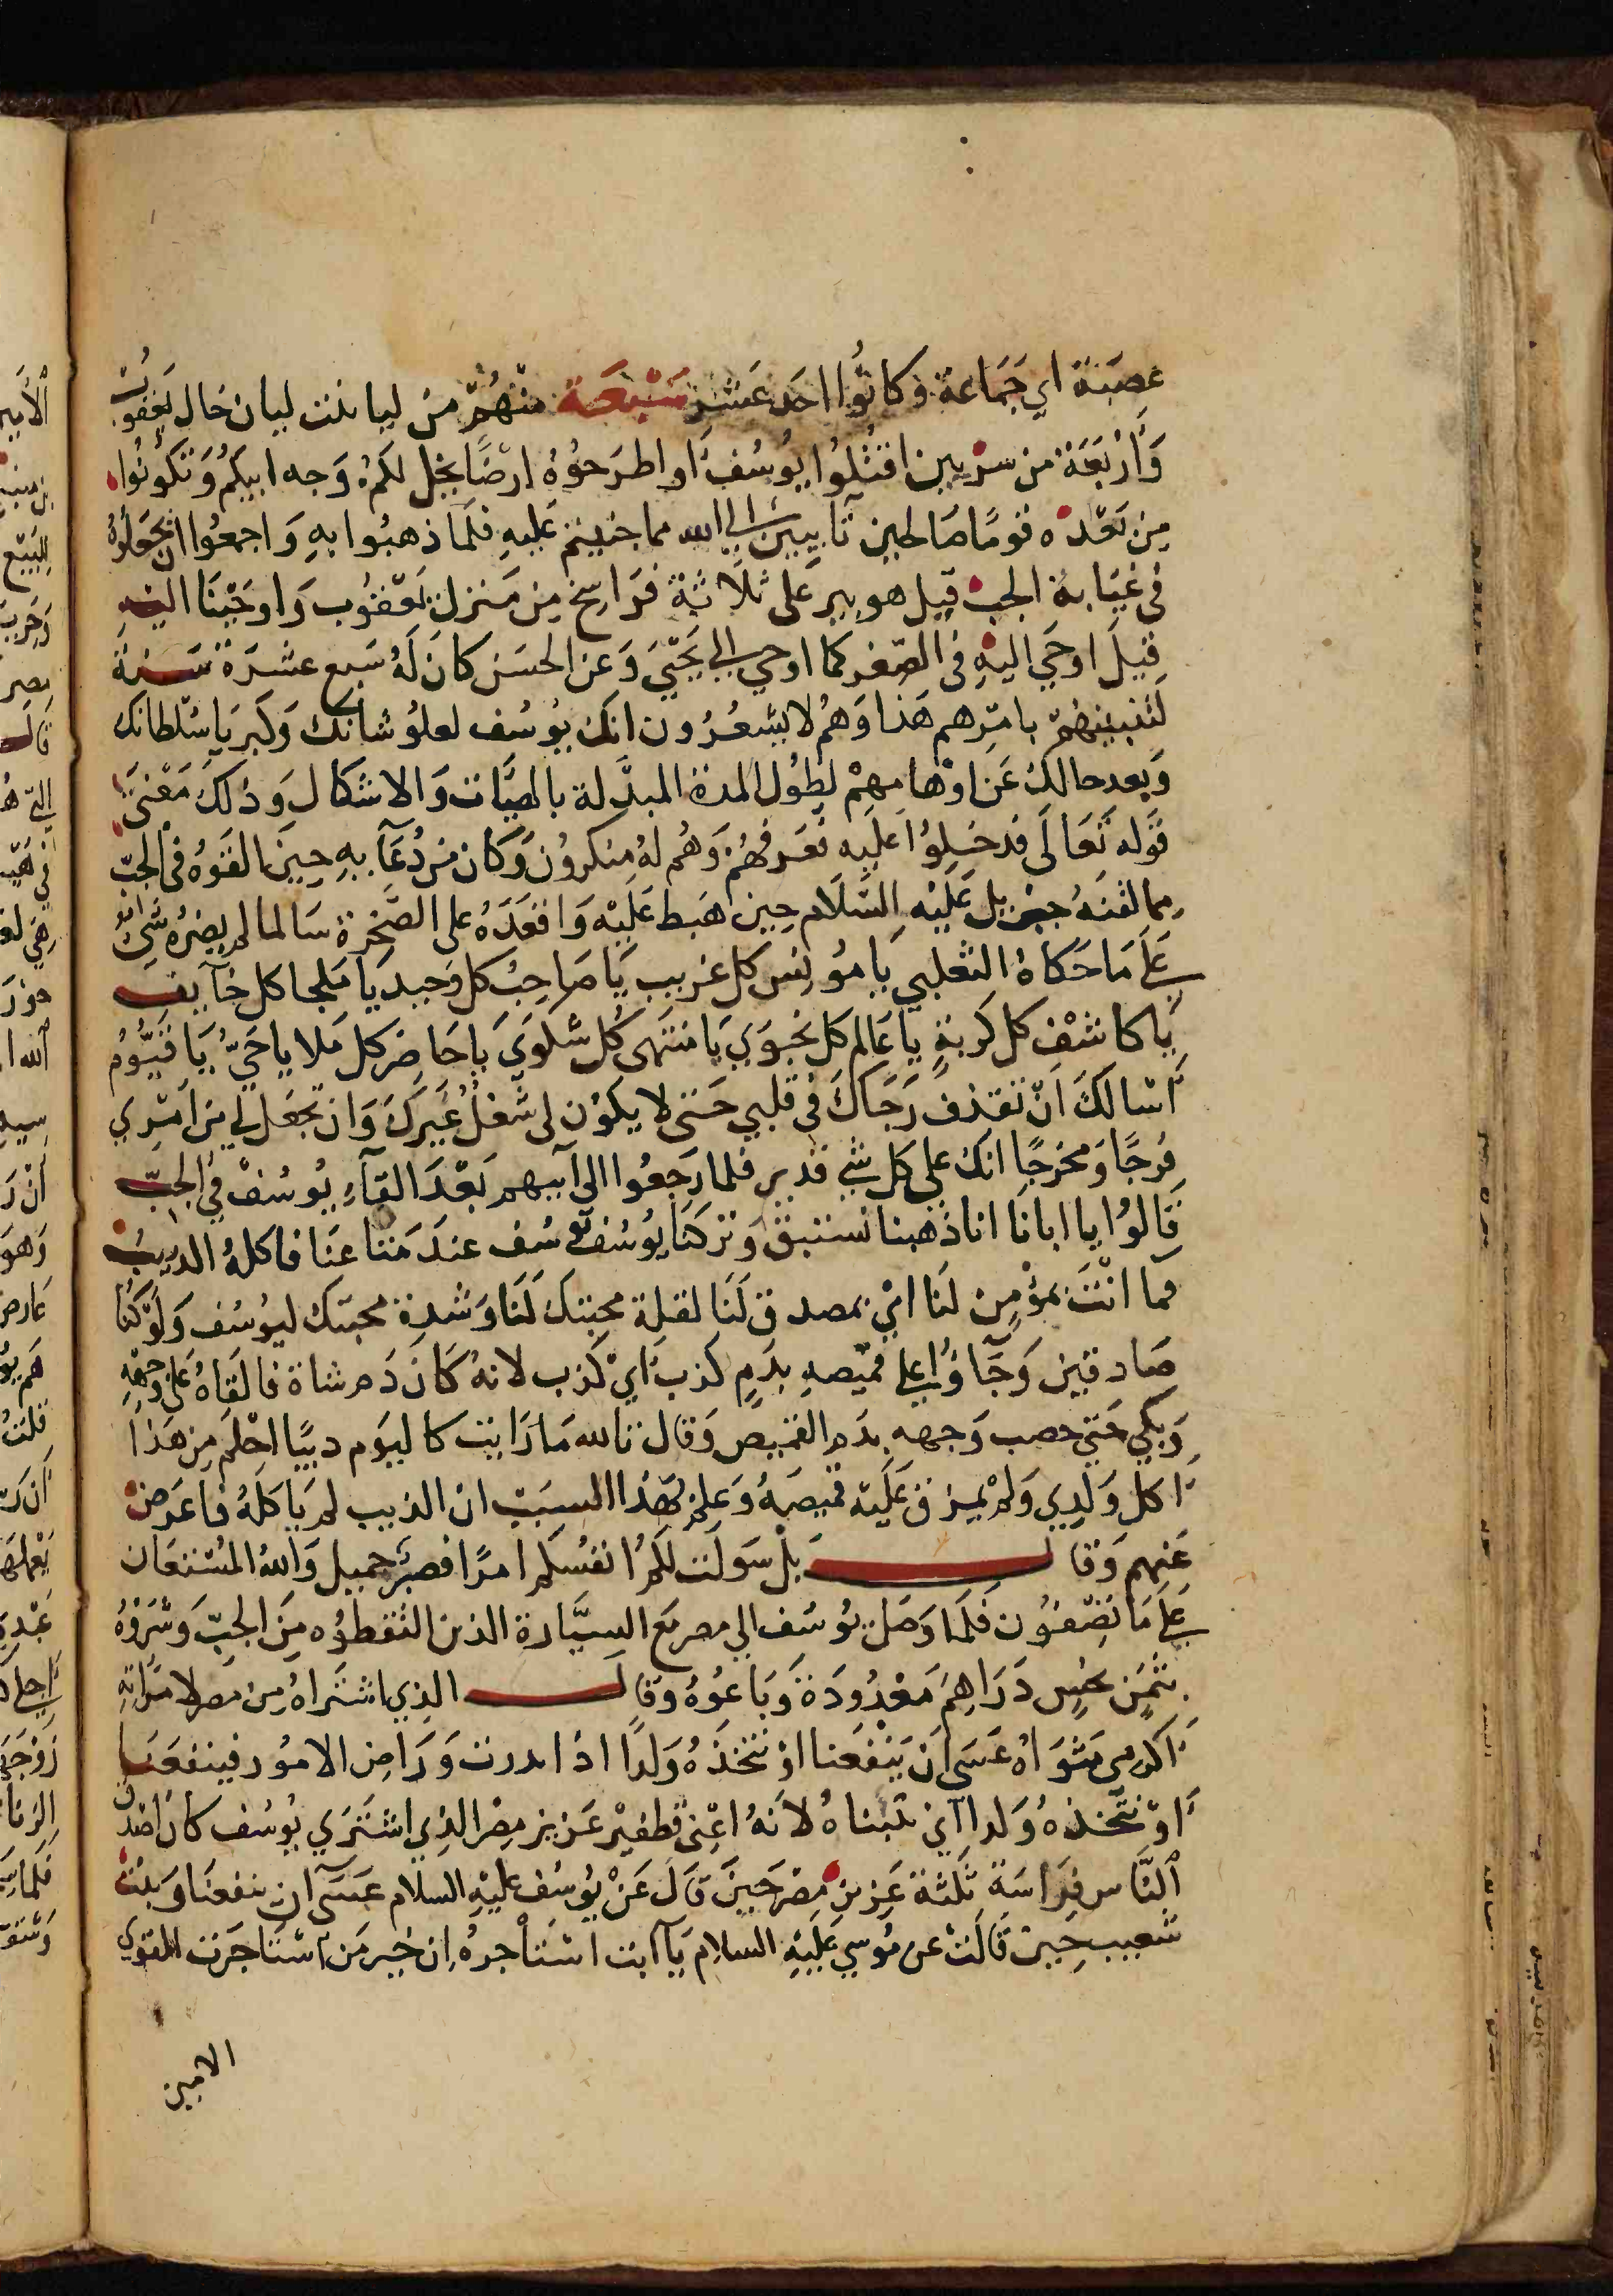 عصبة اي جَمَاعة وَكانُوا احَد عَشر سَبْعَة منْهُمْ من ليا بنت ليان خال يَعقوبْ
وَأرْبَعَة من سرّيتين اقتُلُوا يُوسُف أو اطرَحُوْهُ ارضًا يخلُ لكمْ وَجه ابيكمْ وَتكُونُوا
مِن بَعْدهِ قومًا صَالحين تآيبينَ الي الله مما جنيتم عَليهِ فلمّا ذهبُوا بهِ وَاجمعُوا ان يجعَلُوْهُ
في غيَابة الجب قيل هو بير عَلى ثلَاثة فرَاسخ مِن مَنزل يَعْقُوب وَاوحَيْنَا اليْهِ
قيلَ اوحَي اليْهِ في الصّغر كما اوحي الي يَحْييَ وَعن الحسَن كانَ لَهُ سَبع عشرَة سَنة
لتنبينهمْ بامْرهم هَذا وَهُم لا يشعُرُون انكَ يُوسُف لعلوُ شأنكَ وَكبريا سُلطانك
وَبعد حالكَ عَن اوْهامِهِمْ لطُول المدة المبدّلة بالهيَّات وَالاشكال وَذلكَ مَعْنيَ
قوله تعَالَى فدخلوُا عَليهِ فعَرفهُمْ وَهُم لهُ مِنكروُن وَكان من دُعَآ بهِ حِينَ القوْهُ في الجبّ
مما لقنَهُ جبريل عَليْهِ السَّلَام حِين هَبط عَليْه وَاقعَدَهُ على الصَّخرة سَالما لمريضرُه شيءٌ
عَلَي مَا حَكاهُ الثعْلبي يَا مؤنس كل غريب يَا صَاحِبُ كل وَحيد يَا مَلجا كل خآيف
يَا كاشفْ كل كَربةٍ يا عَالم كل نجوَي يَا منتَهى كُل شكوَي يا حَاضر كل مَلا يا حَيّ يَا قيُّوُم
أسْالكَ أنْ تقذف رَجَاكَ في قلبي حَتى لا يكوُن لي شغْلُ غيَركَ وَان تجعَل لي من أمْري
فرُجًا وَمَخرَجًا انكَ علي كل شي قدير فلما رَجعُوا الي آبيهم بَعْدَ القآءِ يُوسُفْ في الجبّ
قَالوُا يا ابانا انا ذهبنا نستبق وَتركنَا يوُسُف عندَ مَتاعنَا فاكلهُ الديبُ
فما انْتَ بمؤْمِن لنَا ايْ بمصدق لَنَا لقلة محبتك لَنَا وَشدةِ محبتك ليوُسُف وَلَوْ كنَّا
صَادقين وَجَآؤُا علي قميْصهِ بدَمٍ كذبٍ أيْ كذب لانهُ كَانَ دَم شاة فالقَاهُ عَلى وَجهْهِ
وَبكي حَتي خصب وَجهه بدَمِ القميص وَقال تالله مَا رَايت كاليَوم ديبًا احْلم مِن هَذا
أكل وَلَدِي وَلمْ يمزق عَليْه قميصَهُ وَعلمْ بهَذا السبَبْ ان الذيب لم يَاكلَهُ فاعَرَض
عَنهم وَقال بلْ سَولَت لكمُ انفسُكم امرًا فصبرٌ جميل وَاللهُ المسْتعَان
عَلَي مَا تصْفوُن فلمّا وَصَل يوُسُف الي مصر مَع السيَّارة الذين التقطوُه مِنَ الجبّ وَشرَوْهُ
بثَمِنٍ بخُسٍ دَرَاهِمَ مَعْدُودَة وَبَاعوُهُ وَقال الذِي اشترَاهُ مِن مصر لامرَاتهِ
أكرمي مَثوَاهُ عَسَي أنْ يَنْفعَنا اوْ نتَّخذهُ وَلدًا اذا ادرت وَرَاض الامُور فينفعَنا
أوْ نتَّخذهُ وَلدا اي نتبنَاهُ لانهُ اعْني قطفيْر عَزيز مِصْر الذِي اشتَرَي يُوسُف كان اصْدق
النَّاس فرَاسَة ثلثة عَزيز مِصْر حَينَ قالَ عَنْ يوُسُف عليْهِ السلام عَسَي ان ينفعَنا وَبنْتْ
شعيب حِين قالَتْ عن مُوسي عَليْهِ السلام يَآ ابت اسْتأْجرهُ إن خير مَن اسْتاجَرت القوي
الامين